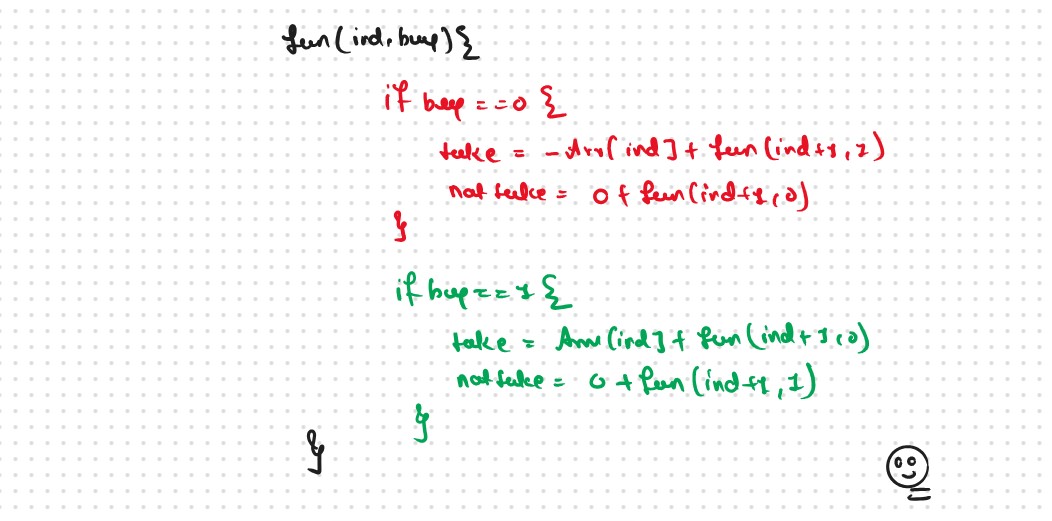 fun(ind, buy){
if buy == 0 {
take = - Arr[ind] + fun(ind+1, 1)
not take = 0 + fun(ind+1, 0)
}
if buy == 1 {
take = Arr[ind] + fun(ind+1, 0)
not take = 0 + fun(ind+1, 1)
}
}